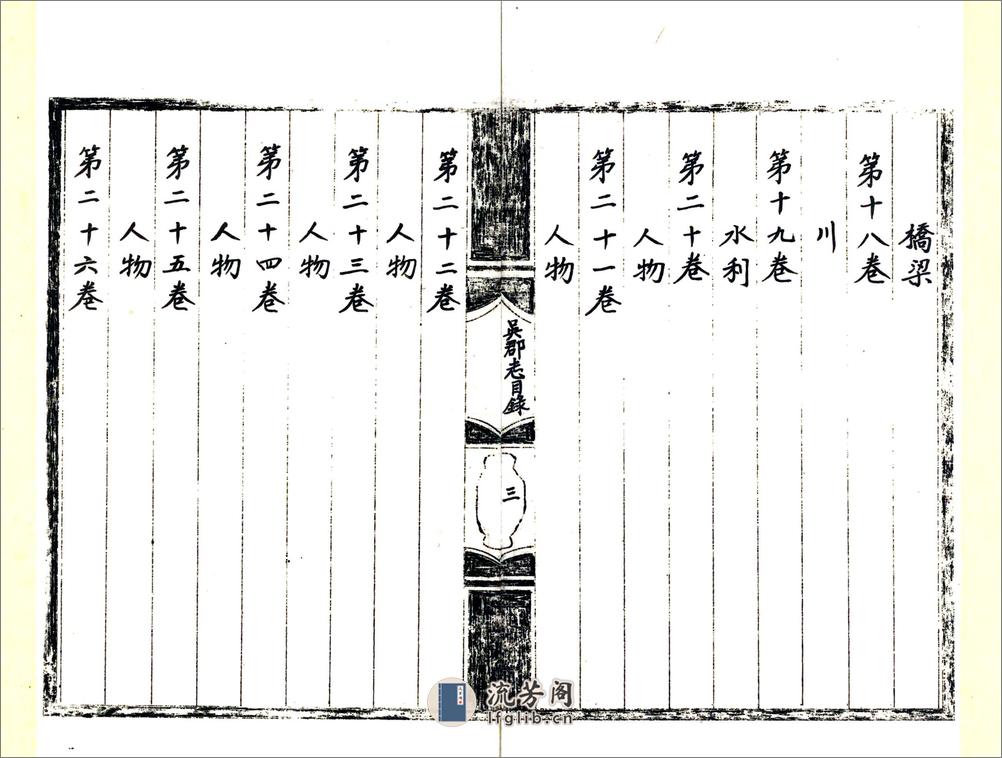 橋梁
第十八卷
川
第十九卷
水利
第二十卷
人物
第二十一卷
人物
吳郡志目錄
三
第二十二卷
人物
第二十三卷
人物
第二十四卷
人物
第二十五卷
人物
第二十六卷
流芳阁
lfglib.cn